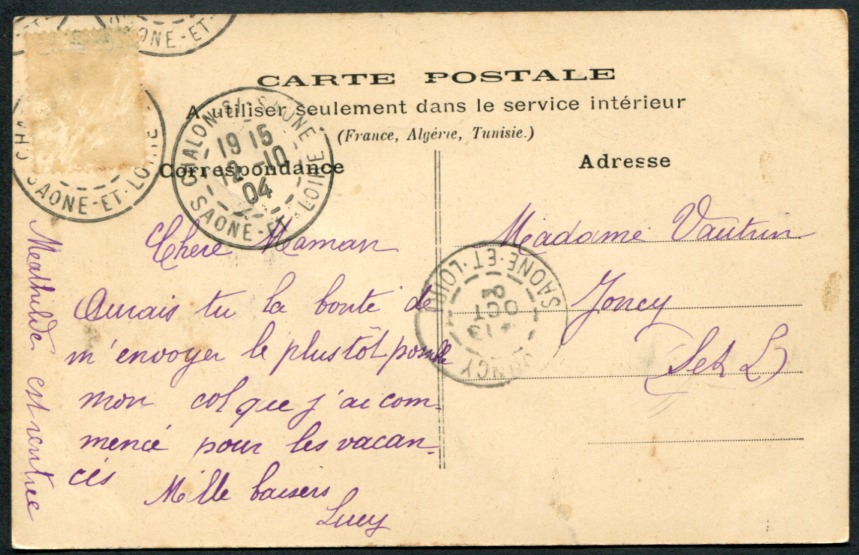 SAONE-ET-
CARTE POSTALE
A utiliser seulement dans le service intérieur
(France, Algérie, Tunisie.)
Correspondance
Adresse
CHALON-S-SAONE
19 15
12 -10
04
SAONE-ET-LOIRE
SAONE-ET-LOIRE
Chère Maman
Aurais tu la bonté de
m'envoyer le plus tôt possible
mon col que j'ai com-
mencé pour les vacan-
ces
Mille baisers
Lucy
Mathilde est rentrée
Madame Vautrin
Joncy
(S et L)
JONCY
13
OCT
SAONE-ET-LOIRE